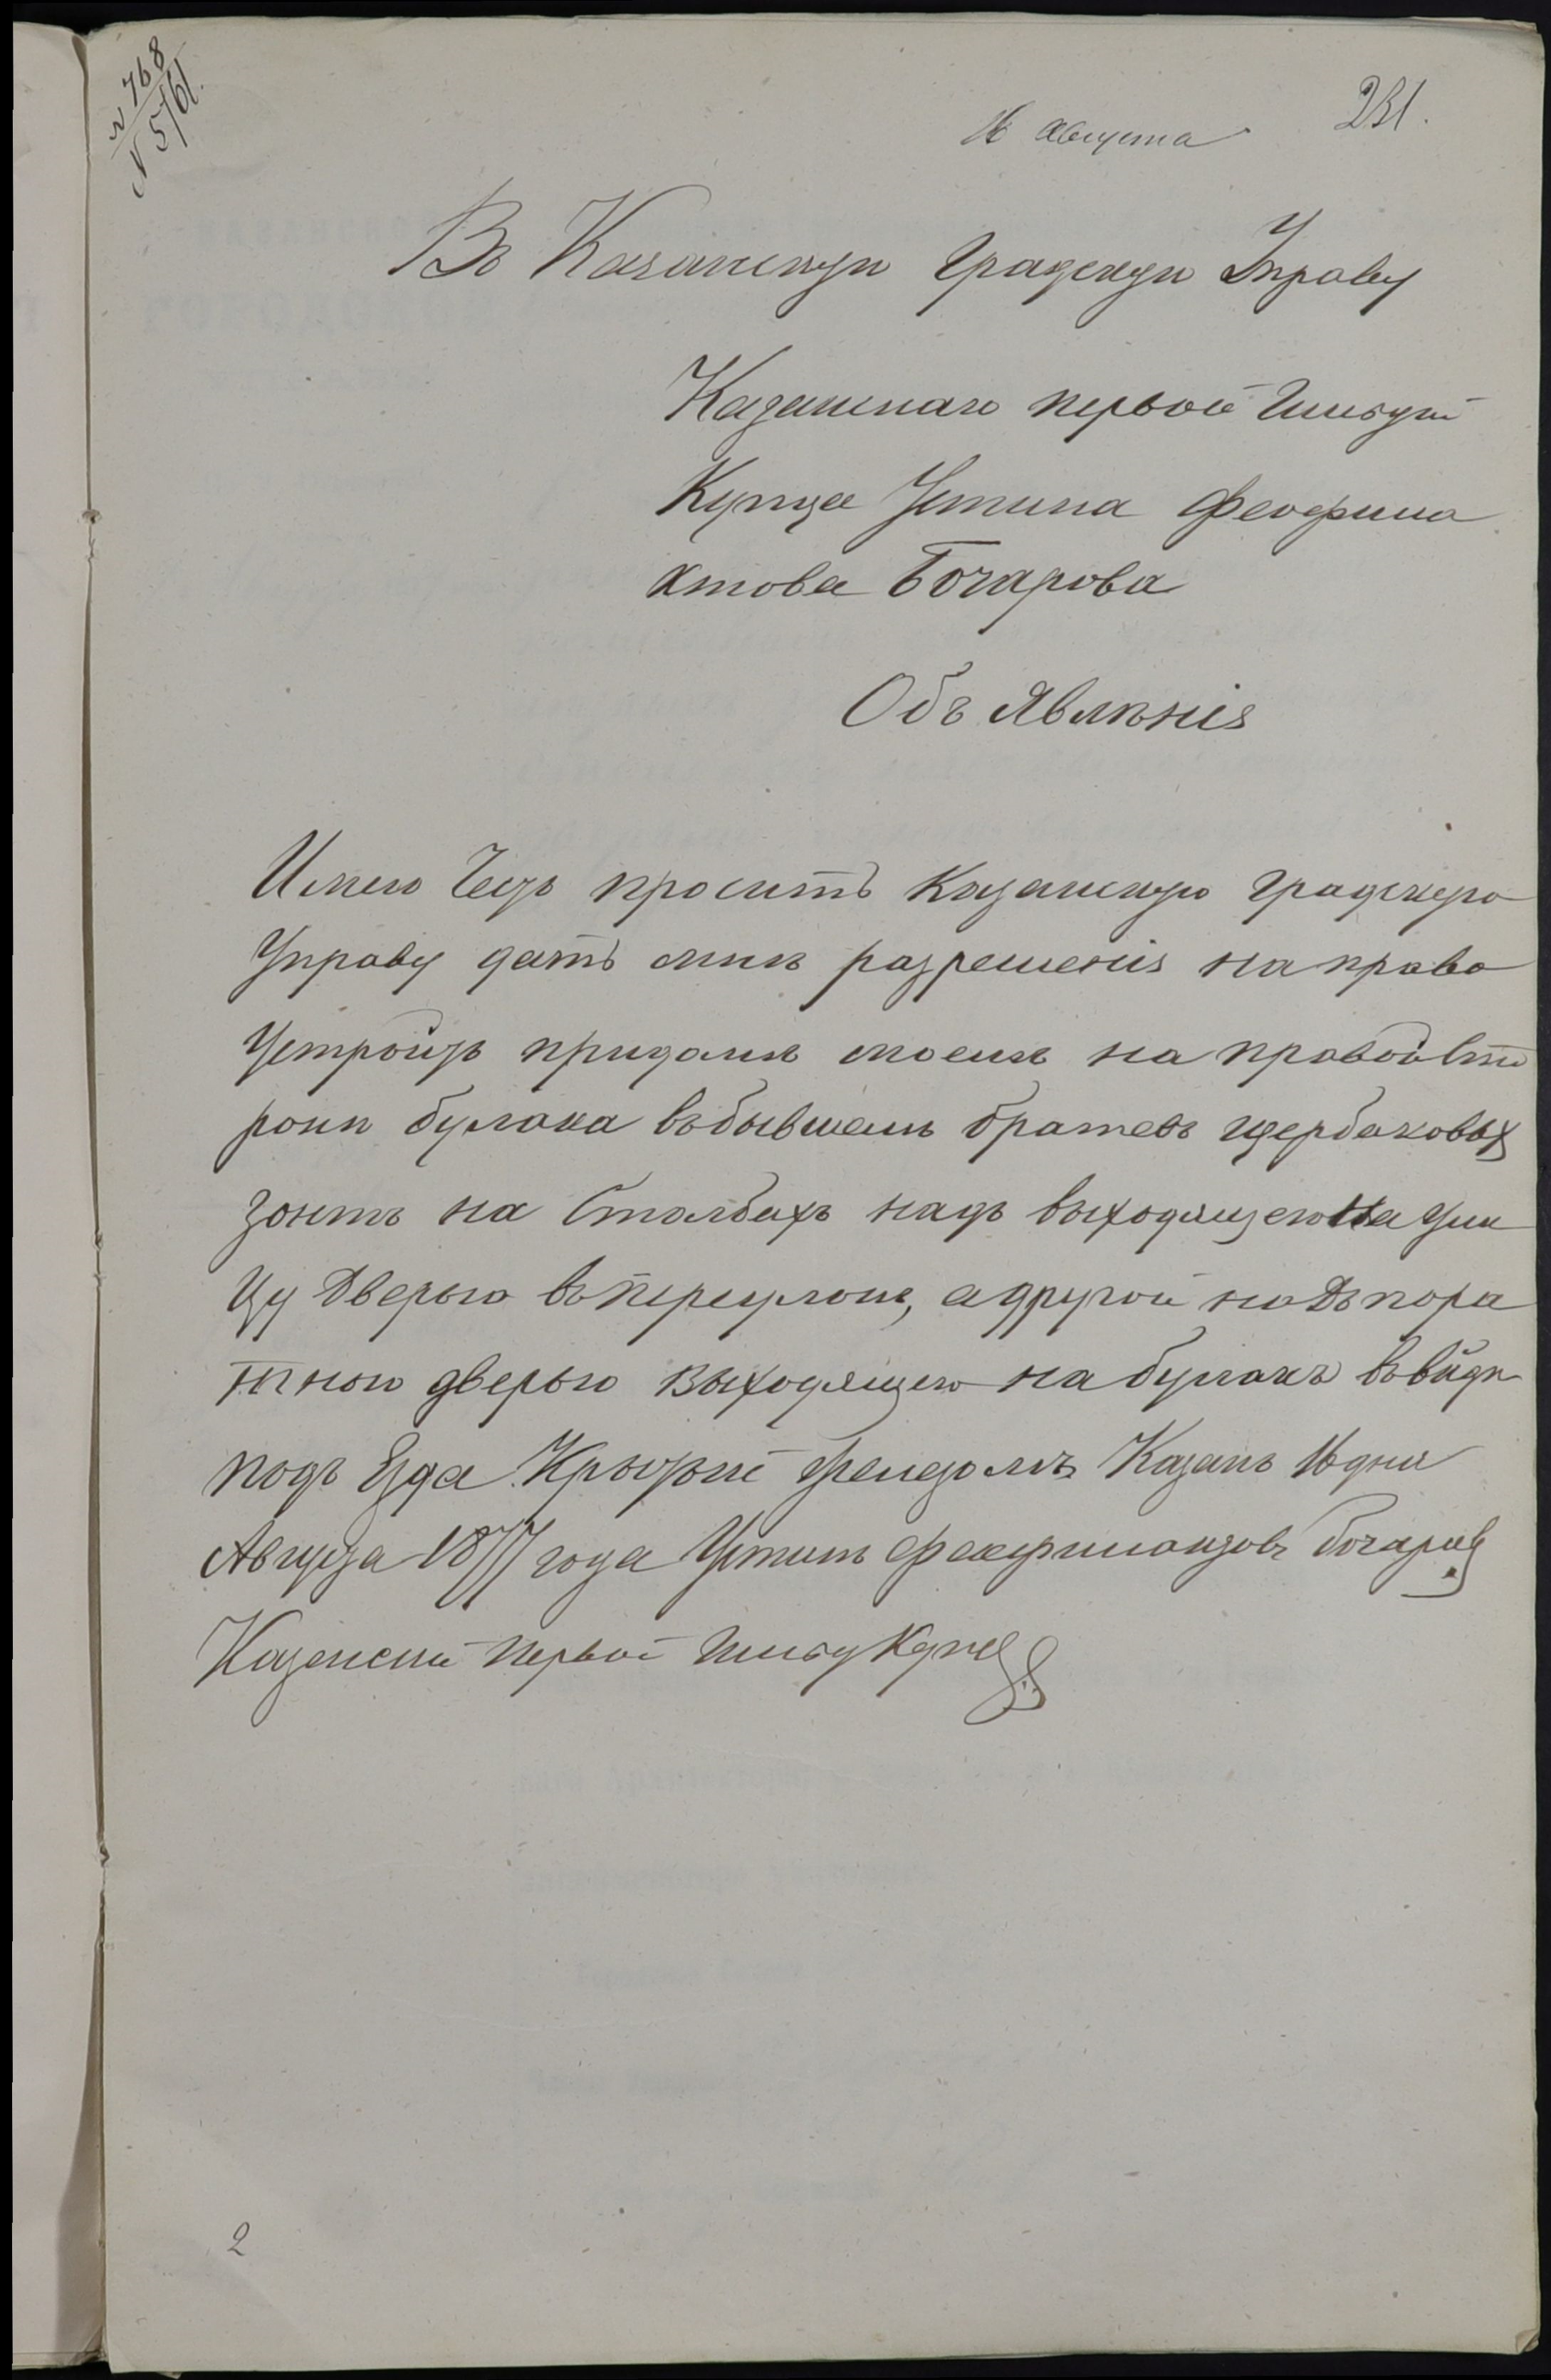 N 768
N 5761.
16 августа 231.
Въ Казанскую Градскую Управу
Казанскаго первой Гильдіи
Купца Устина Феофила
ктова Бочарова
Объ Явленія
Имею Честь просить Казанскую градскую
Управу дать мнѣ разрешенія на право
Устроить придомѣ моемъ на правой сто
ронѣ булака въбывшемъ братевъ щербаковых
зонтъ на Столбахъ надъ выходящею на ули
цу Дверью въ переулокъ, а другой надъ пора
тною дверью выходящею на булакъ въвидѣ
подъ Езда Крытый Казань 16 дня
Августа 1877 года Устинъ Бочаровъ
Казанский первой Гильды Купец
2